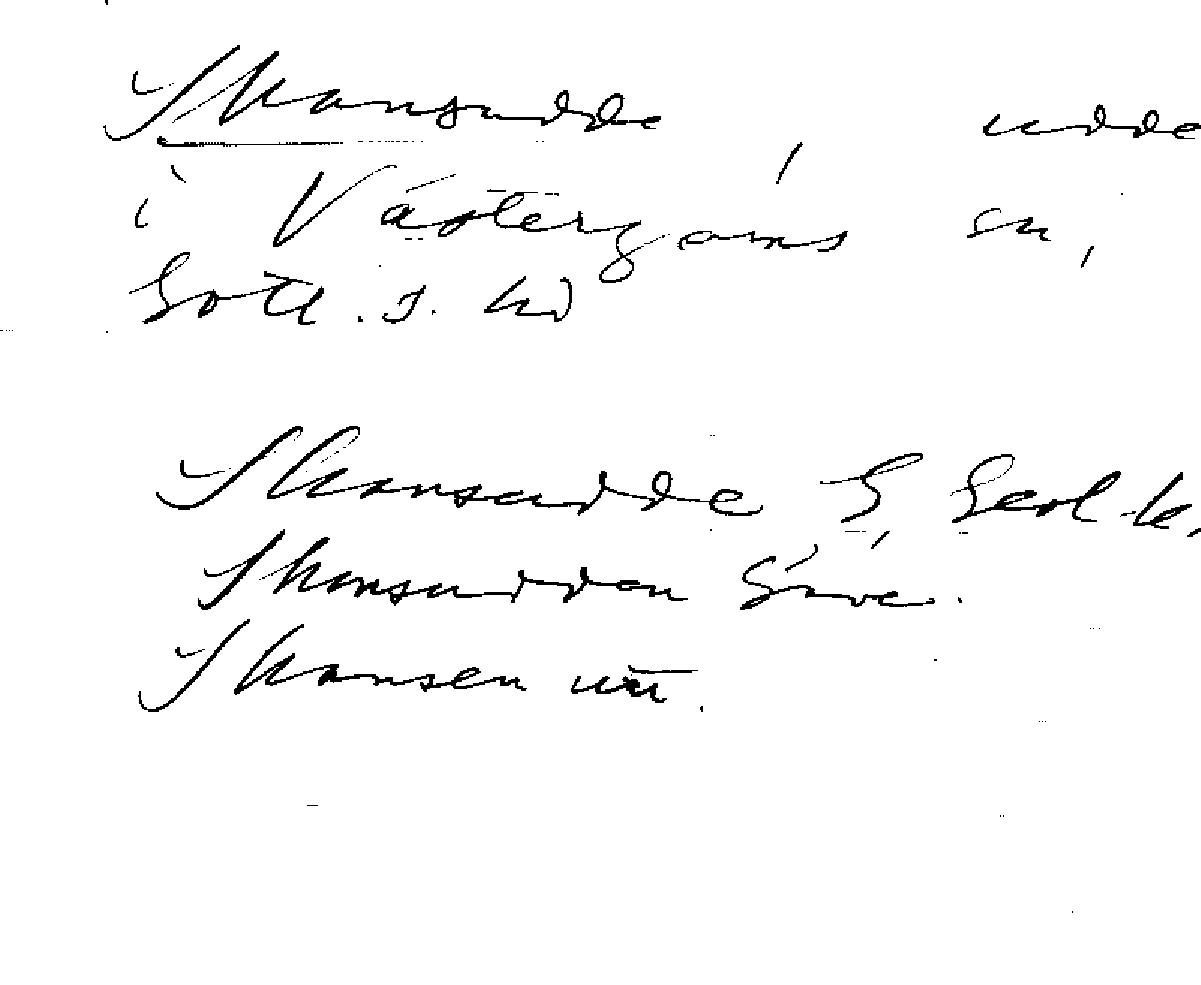 Skansudde, udde
i Västergarns sn,
Gotl. s. hd
Skansudde G, Geol. k,
Skansudden Säve.
Skansen utt.